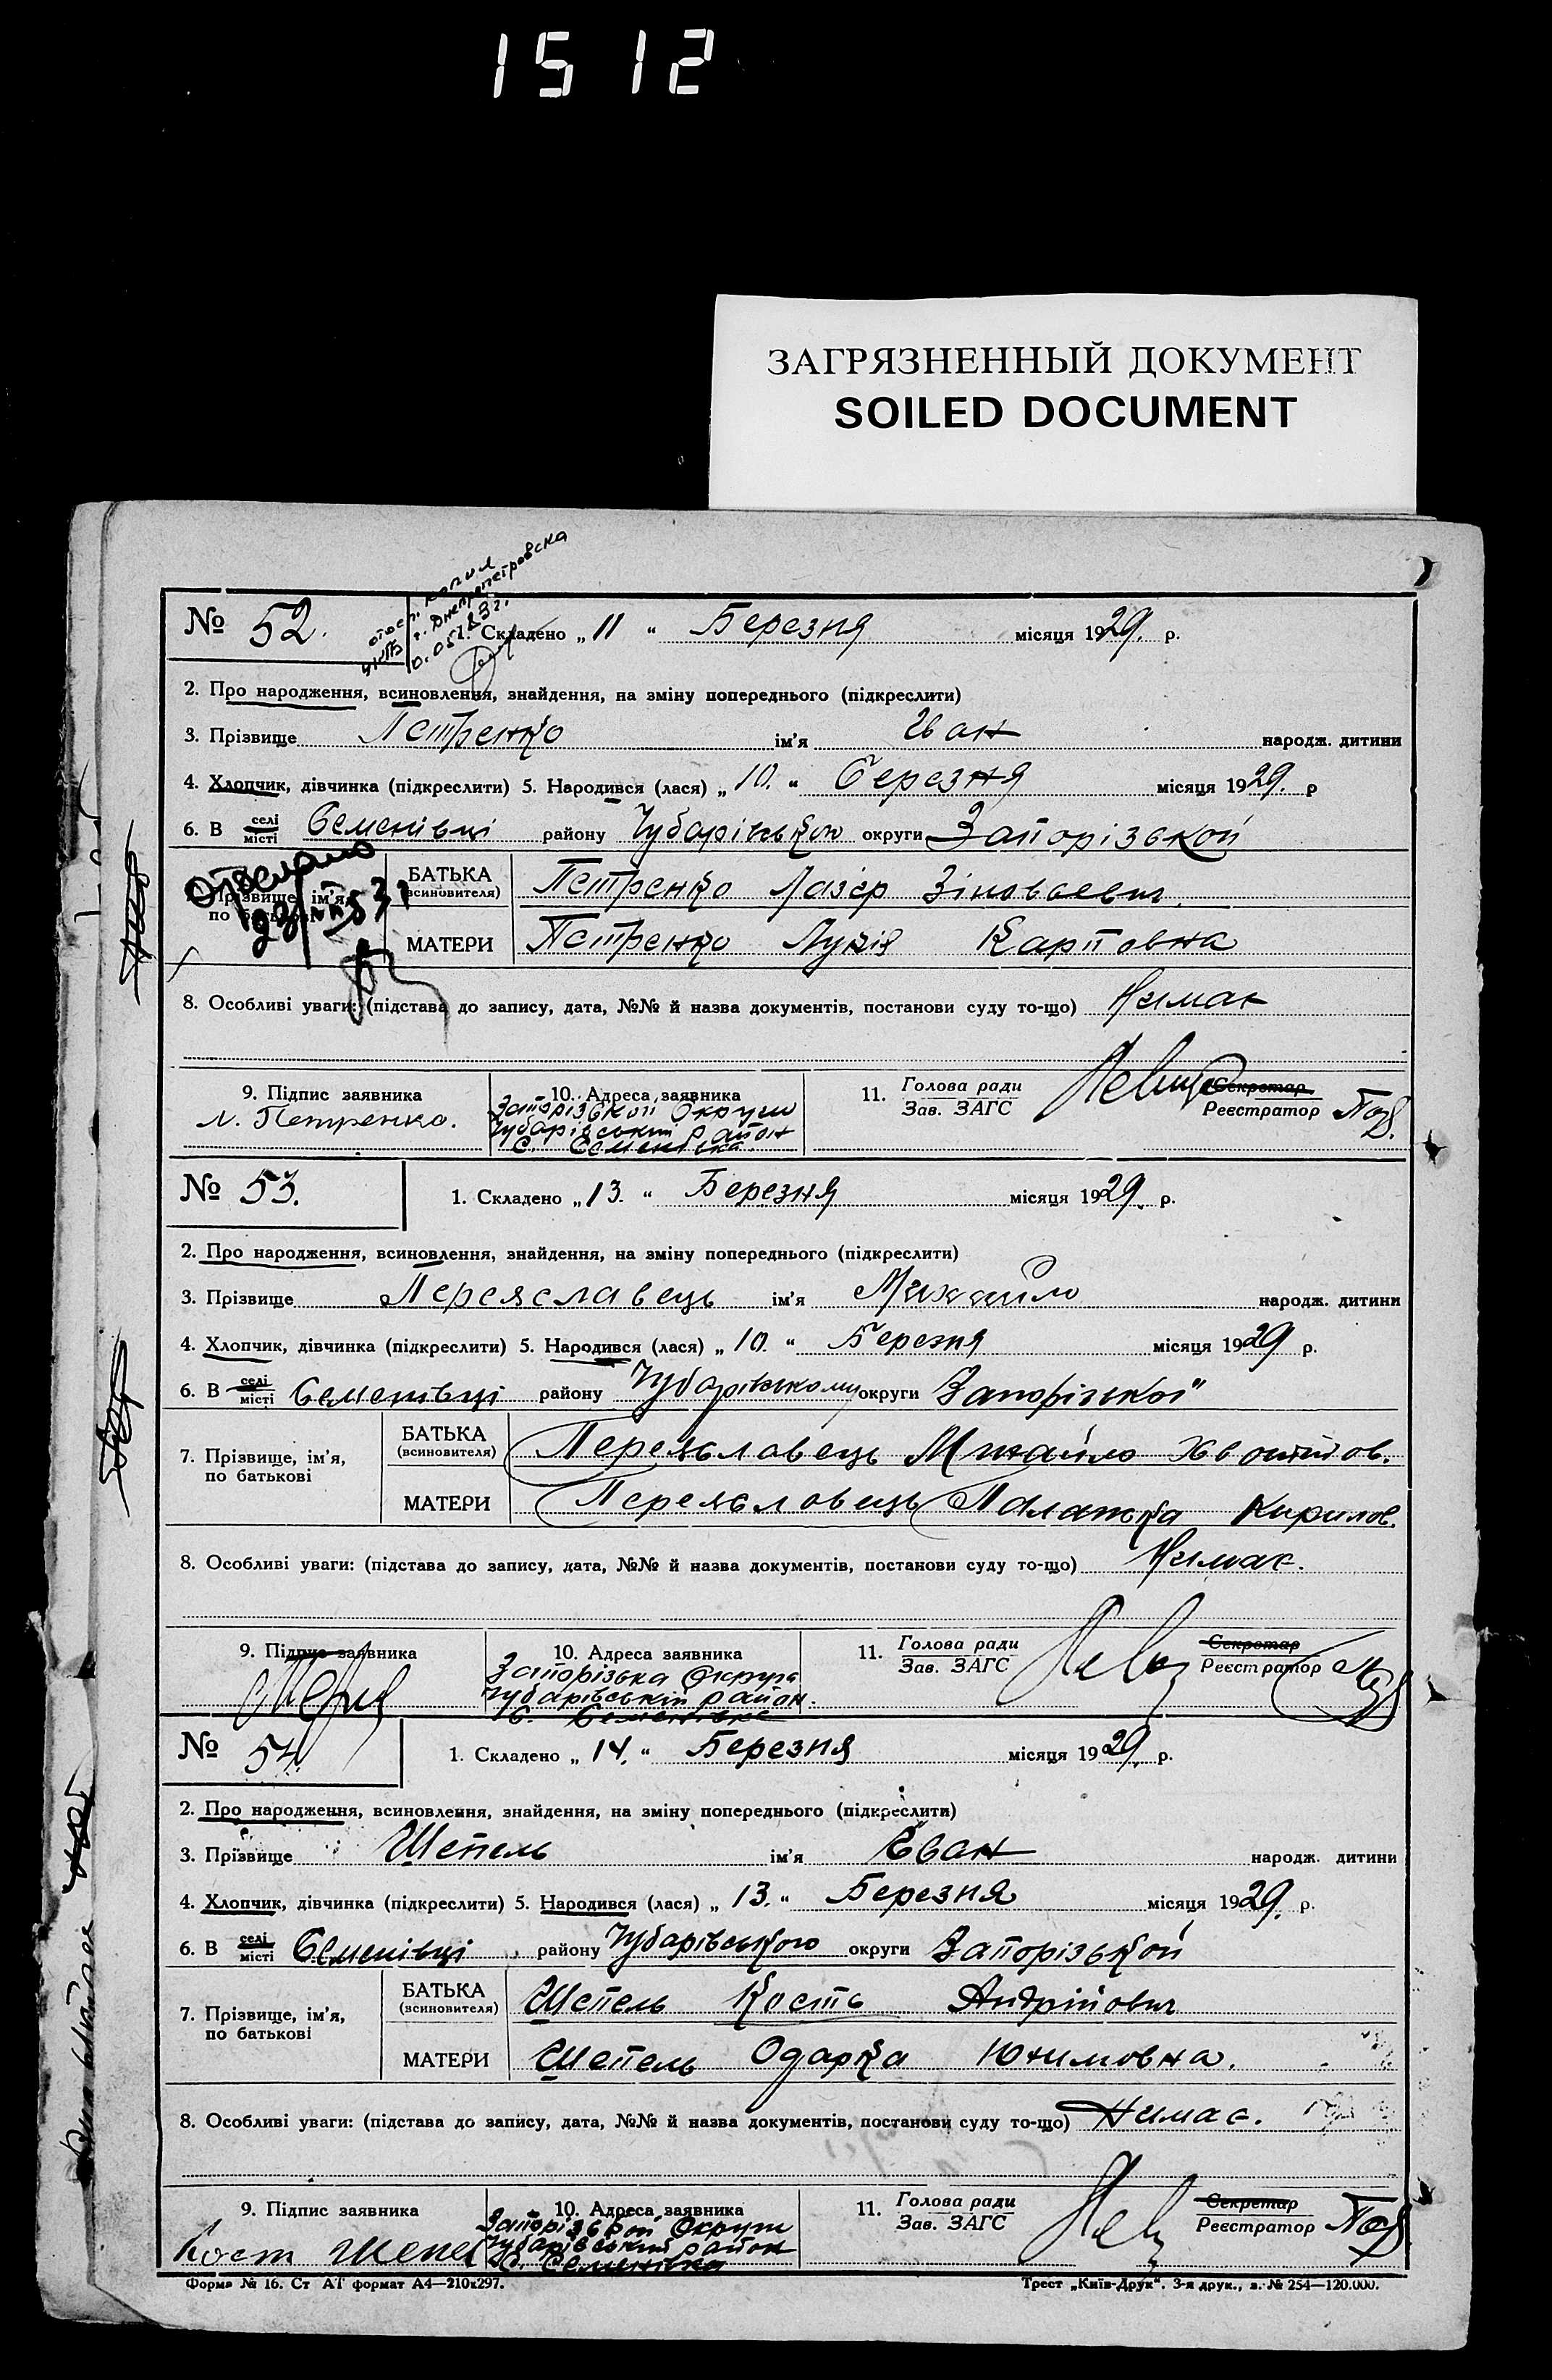 1512
ЗАГРЯЗНЕННЫЙ ДОКУМЕНТ
SOILED DOCUMENT
№ 52.
1. Складено „ 11 “ Березня місяця 1929. р.
2. Про народження, всиновлення, знайдення, на зміну попереднього (підкреслити)
3. Прізвище Петренко ім'я Іван народж. дитини
4. Хлопчик, дівчинка (підкреслити) 5. Народився (лася) „ 10. “ березня місяця 1929. р
6. В селі місті Семенівці району Чубарівською округи Запорізькой
Отослано
Прізвище, ім'я, по батькові
БАТЬКА (всиновителя) Петренко Лазер Зіновьевич.
МАТЕРИ Петренко Лукія Карповна
8. Особливі уваги: (підстава до запису, дата, №№ й назва документів, постанови суду то-що) Нимає
9. Підпис заявника 10. Адреса заявника 11. Голова ради Зав. ЗАГС Секретар Реєстратор
Л. Петренко. Запорізькой Округи
Чубарівський район
с. Семенівка.
№ 53.
1. Складено „ 13. “ Березня місяця 1929. р.
2. Про народження, всиновлення, знайдення, на зміну попереднього (підкреслити)
3. Прізвище Переяславець ім'я Михайло народж. дитини
4. Хлопчик, дівчинка (підкреслити) 5. Народився (лася) „ 10. “ Березня місяця 1929 р.
6. В селі місті Семенівці району Чубарівському округи Запорізької
7. Прізвище, ім'я, по батькові
БАТЬКА (всиновителя) Переяславець Михайло
МАТЕРИ Переяславець Палажка Кирилов.
8. Особливі уваги: (підстава до запису, дата, №№ й назва документів, постанови суду то-що) Нимає.
9. Підпис заявника 10. Адреса заявника 11. Голова ради Зав. ЗАГС Секретар Реєстратор
Запорізька Округа
Чубарівський район.
с. Семенівка
№ 54.
1. Складено „ 14. “ Березня місяця 1929. р.
2. Про народження, всиновлення, знайдення, на зміну попереднього (підкреслити)
3. Прізвище Шепель ім'я Єван народж. дитини
4. Хлопчик, дівчинка (підкреслити) 5. Народився (лася) „ 13. “ Березня місяця 1929. р.
6. В селі місті Семенівці району Чубарівського округи Запорізькой
7. Прізвище, ім'я, по батькові
БАТЬКА (всиновителя) Шепель Кость Андрійович
МАТЕРИ Шепель Одарка Юхимовна.
8. Особливі уваги: (підстава до запису, дата, №№ й назва документів, постанови суду то-що) Нимає.
9. Підпис заявника 10. Адреса заявника 11. Голова ради Зав. ЗАГС Секретар Реєстратор
Кост Шепел Запорізькой Округи
Чубарівський район
с. Семенівка
Форма № 16. Ст АТ формат А4—210х297.
Трест „Київ-Друк“. 3-я друк., з. № 254—120.000.